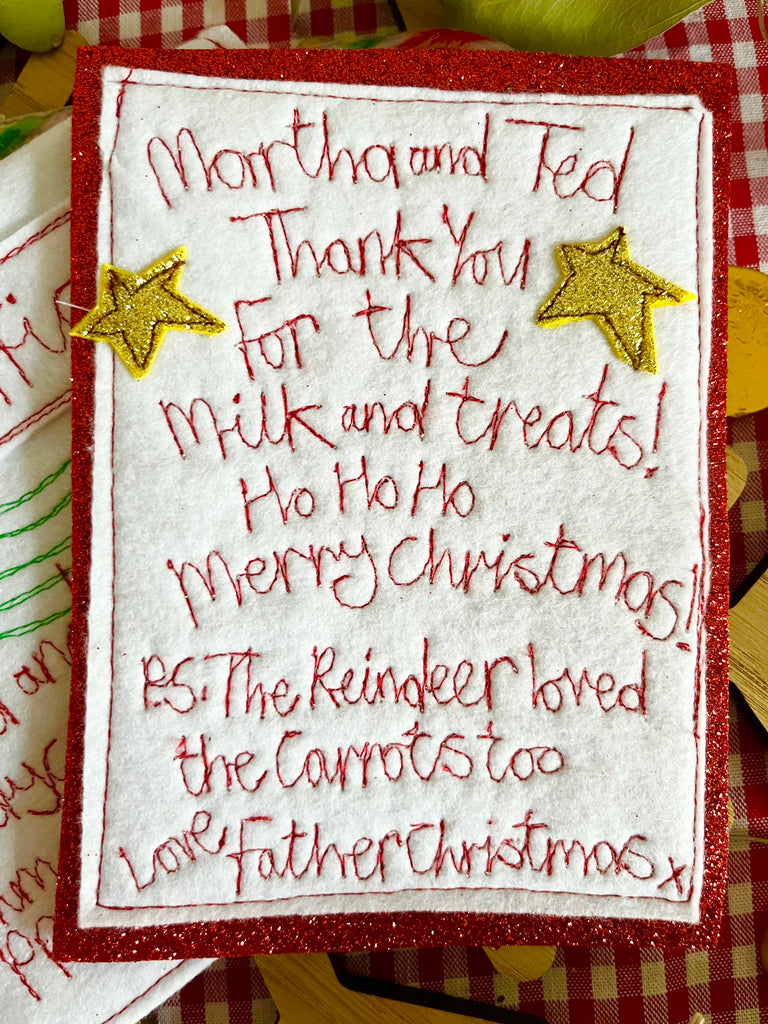 Martha and Ted
Thank You
For the
Milk and treats!
Ho Ho Ho
Merry Christmas!
P.S. The Reindeer loved
the Carrots too
Love Father Christmas x